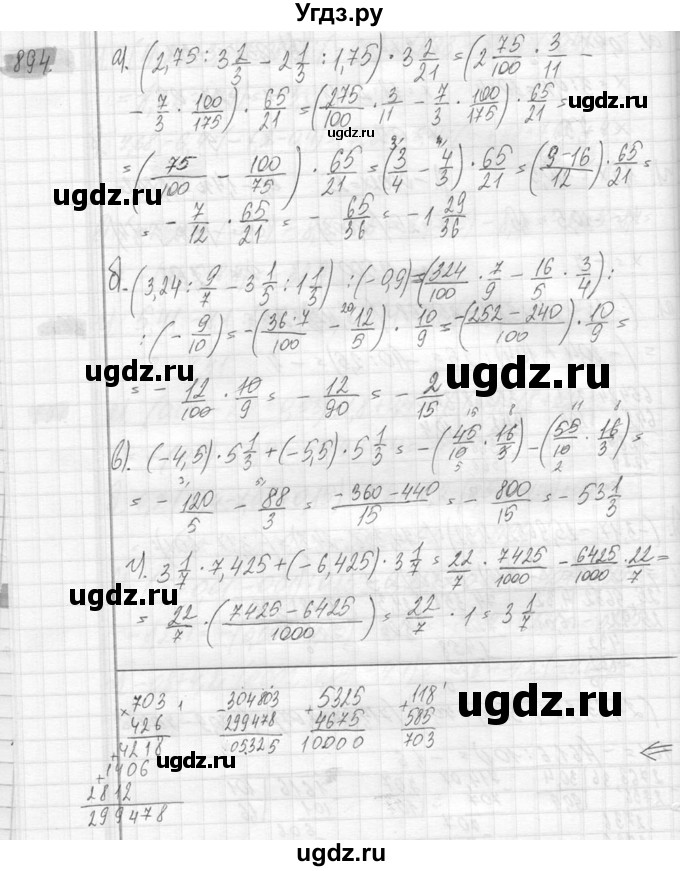 Угдз.ру
894
а). (2,75 : 3 2/3 - 2 1/3 : 1,75) · 3 2/21 = (2 75/100 · 3/11 -
- 7/3 · 100/175) · 65/21 = (275/100 · 3/11 - 7/3 · 100/175) · 65/21 =
= (75/100 - 100/75) · 65/21 = (3/4 - 4/3) · 65/21 = (9-16/12) · 65/21 =
= - 7/12 · 65/21 = - 65/36 = -1 29/36
б) -(3,24 : 9/7 - 3 1/5 : 1 1/3) : (-0,9) = (324/100 · 7/9 - 16/5 · 3/4) :
: (- 9/10) = -(36·7/100 - 12/5) · 10/9 = -(252-240)/100 · 10/9 =
= - 12/100 · 10/9 = - 12/90 = - 2/15
в). (-4,5) · 5 1/3 + (-5,5) · 5 1/3 = -(45/10 · 16/3) - (55/10 · 16/3) =
= - 120/5 - 88/3 = -360-440/15 = - 800/15 = -53 1/3
г). 3 1/7 · 7,425 + (-6,425) · 3 1/7 = 22/7 · 7425/1000 - 6425/1000 · 22/7 =
= 22/7 · (7425-6425/1000) = 22/7 · 1 = 3 1/7
× 703
426
+ 4218
+ 1406
2812
299478
- 304803
299478
05325
+ 5325
4675
10000
+ 118
585
703
ugdz.ru
ugdz.ru
ugdz.ru
ugdz.ru
ugdz.ru
ugdz.ru
ugdz.ru
ugdz.ru
ugdz.ru
ugdz.ru
ugdz.ru
ugdz.ru
ugdz.ru